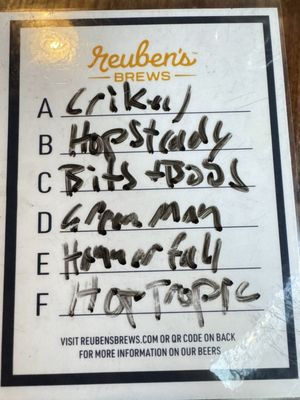 reuben's
BREWS
A Crikey
B Hop Steady
C Bits + Bobs
D Green Man
E Hammerfall
F Hop Tropic
VISIT REUBENSBREWS.COM OR QR CODE ON BACK
FOR MORE INFORMATION ON OUR BEERS